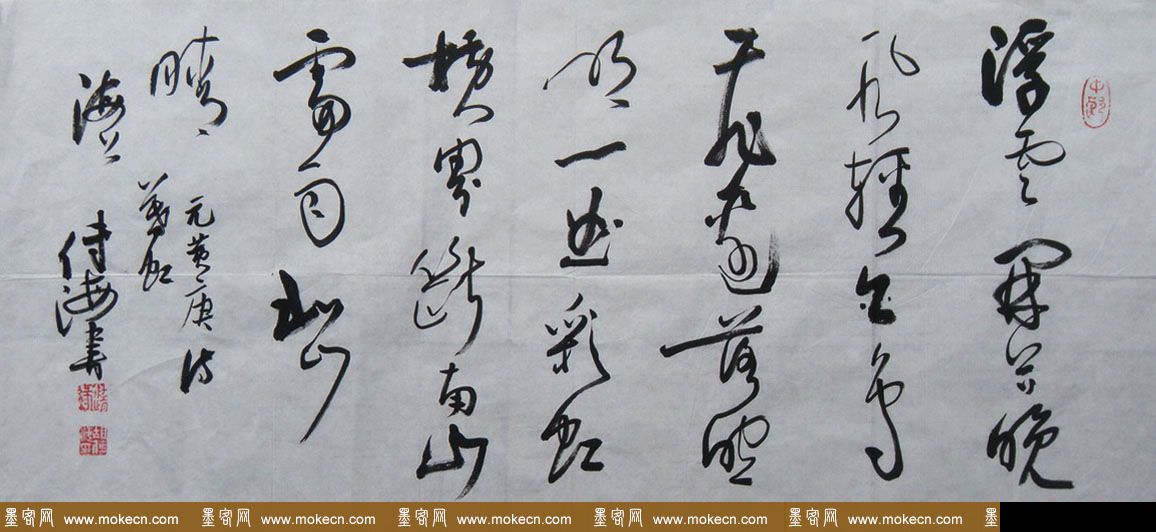 浮云开合晚
风轻白鸟
飛邊落照
明一曲彩虹
横界断南山
雷雨北山
晴
元黄庚诗
暮虹
海上
海书
墨客网 www.mokecn.com 墨客网 www.mokecn.com 墨客网 www.mokecn.com 墨客网 www.mokecn.com 墨客网 www.mokecn.com